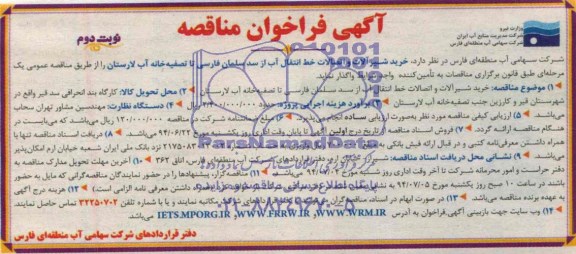 وزارت نیرو
شرکت مدیریت منابع آب ایران
شرکت سهامی آب منطقه‌ای فارس
آگهی فراخوان مناقصه
نوبت دوم
شرکت سهامی آب منطقه‌ای فارس در نظر دارد، خرید شیرآلات و اتصالات خط انتقال آب از سد سلمان فارسی تا تصفیه‌خانه آب لارستان را از طریق مناقصه عمومی یک
مرحله‌ای طبق قانون برگزاری مناقصات به تأمین‌کننده واجد شرایط واگذار نماید.
۱) موضوع مناقصه: خرید شیرآلات و اتصالات خط انتقال آب از سد سلمان فارسی تا تصفیه‌خانه آب لارستان ۲) محل تحویل کالا: کارگاه بند انحرافی سد قیر واقع در
شهرستان قیر و کارزین جنب تصفیه‌خانه آب لارستان ۳) برآورد هزینه اجرایی پروژه: حدود ریال ۴) دستگاه نظارت: مهندسین مشاور تهران سحاب
۵) ارزیابی کیفی مناقصه مورد نظر به‌صورت ارزیابی ساده انجام می‌پذیرد ۶) مبلغ ضمانتنامه شرکت در مناقصه ۱۲۰/۰۰۰/۰۰۰ ریال می‌باشد که می‌بایست در
هنگام مناقصه ارائه گردد. ۷) فروش اسناد مناقصه از تاریخ درج اولین آگهی تا پایان وقت اداری روز یکشنبه مورخ ۹۴/۰۶/۲۲ می‌باشد. ۸) دریافت اسناد مناقصه تنها با
در دست داشتن معرفی‌نامه کتبی شرکت و در قبال فیش بانکی به مبلغ نزد بانک ملی ایران شعبه خیابان ارم امکان‌پذیر
می‌باشد. ۹) نشانی محل دریافت اسناد مناقصه: شیراز دفتر قراردادهای شرکت آب منطقه‌ای فارس، اتاق ۳۶۲ ۱۰) آخرین مهلت تحویل مدارک مناقصه به
دفتر حراست و امور محرمانه شرکت تا آخر وقت اداری روز شنبه مورخ می‌باشد. ۱۱) مناقصه‌گزار، پیشنهادها را در حضور نمایندگان مناقصه‌گرانی که مایل به حضور
باشند در ساعت ۱۰ صبح روز یکشنبه مورخ ۹۴/۰۷/۰۵ باز خواهد نمود (همراه داشتن معرفی نامه الزامی است) ۱۲) هزینه درج آگهی
به عهده برنده مناقصه می‌باشد. ۱۳) در صورت ابهام در اسناد، مناقصه‌گران مکاتبه نمایند و یا با شماره تلفن ۳۲۲۵۰۷۰۲ تماس حاصل نمایند.
۱۴) وب سایت جهت بازبینی آگهی‌فراخوان به آدرس WWW.WRM.IR، WWW.FRRW.IR، IETS.MPORG.IR می‌باشد.
دفتر قراردادهای شرکت سهامی آب منطقه‌ای فارس
ParsNamadData
پایگاه اطلاع رسانی مناقصه و مزایده
۰۲۱-۸۸۳۴۹۶۷۰-۵